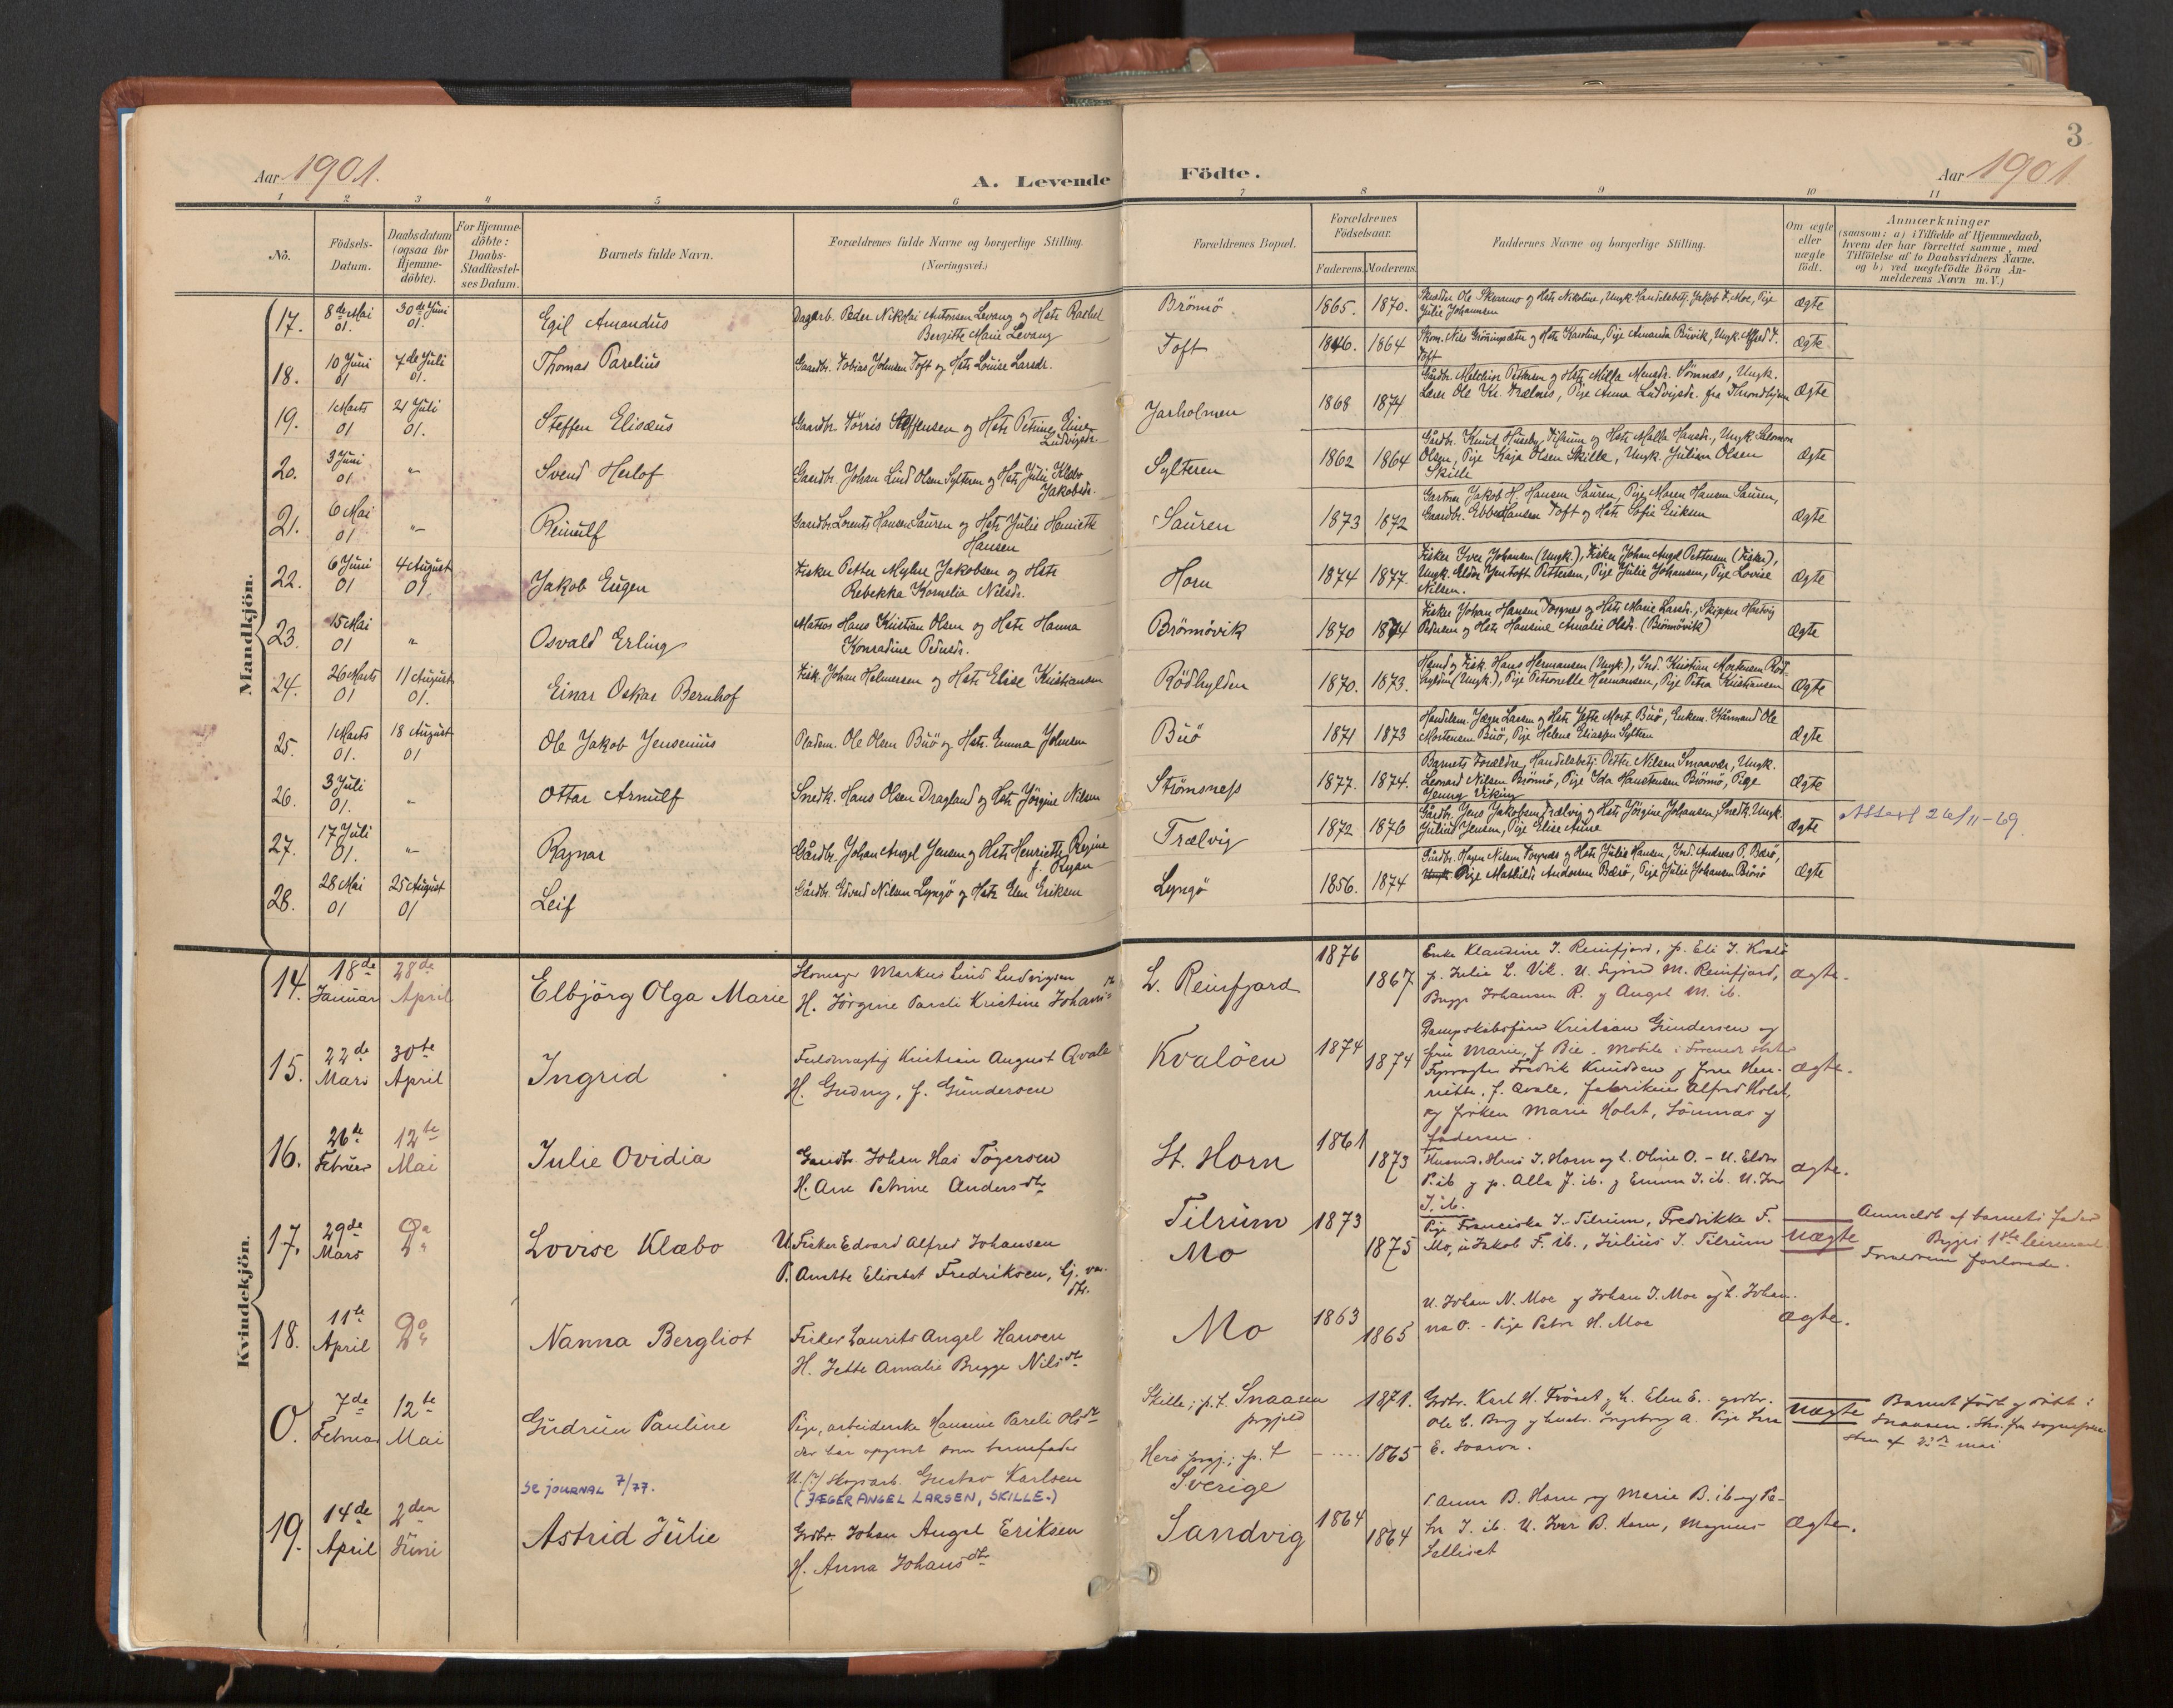 3
Aar 1901. A. Levende Födte. Aar 1901.
1 2 3 4 5 6 7 8 9 10 11
No. Födsels-Datum. Daabsdatum (ogsaa for Hjemme-döbte). For Hjemme-döbte: Daabs-Stadfæstel-ses Datum. Barnets fulde Navn. Forældrenes fulde Navne og borgerlige Stilling. (Næringsvei.) Forældrenes Bopæl. Forældrenes Födselsaar. Faderens. Moderens. Faddernes Navne og borgerlige Stilling. Om ægte eller uægte födt. Anmærkninger
(saasom: a) i Tilfælde af Hjemmedaab, hvem der har forrettet samme, med Tilföielse af to Daabsvidners Navne. og b) ved uægtefödte Börn An-melderens Navn m. V.)
Mandkjön.
17. 8de Mai 01. 30de Juni 01. Egil Amandus Dagarb. Peder Nikolai Antonsen Levang og Hstr Rachel Bergitte Marie Levang Brönnö 1865. 1870. Ole Skraamo og Hstr Nikoline, Ungk. Handelsbetj. Jakob Moe, Pige Julie Johannsen Ægte
18. 10 Juni 01 7de Juli 01. Thomas Parelius Gaardbr. Tobias Johnsen Toft og Hstr Louise Larsdr. Toft 1846. 1864 Nils og Hstr Karoline, Pige Amanda Buvik, Ungk. Alfred T. Toft Ægte
19. 1 Marts 01 21 Juli 01. Steffen Elisæus Gaardbr. Törris Steffensen og Hstr Petrine Ludvigsdr. Jarholmen 1868 1874 Gårdbr. Melchior Pettersen og Hstr Milla Sömnes, Ungk. Lærer Ole Kr. Trælnes, Pige Anna Ludvigsdr. fra Ægte
20. 3 Juni 01 " Svend Herlof Gaardbr. Johan Lind Olsen Sylteren og Hstr Julie Klæbo Jakobsdr. Sylteren 1862 1864 Gårdbr. Knud Huseby Tilrum og Hstr Malla Hansdr., Ungk. Salomon Olsen, Pige Kaja Olsen Skille, Ungk. Julian Olsen Skille Ægte
21. 6 Mai 01 " Reinulf Gaardbr. Lorents Hansen Sauren og Hstr Julie Henriette Hansen Sauren 1873 1872 Gartner Jakob H. Hansen Sauren, Pige Maren Hansen Sauren, Gaardbr. Ebbe Hansen Toft og Hstr Sofie Eriksen Ægte
22. 6 Juni 01 4 August 01 Jakob Eugen Fisker Petter Jakobsen og Hstr Rebekka Kornelia Nilsdr. Horn 1874 1877. Fisker Iver Johansen (Ungk.), Fisker Johan Angel Pettersen (Fisker), Ungk. Jentoft Pettersen, Pige Julie Johansen, Pige Lovise Nilsen. Ægte
23. 15 Mai 01 " Osvald Erling Matros Hans Kristian Olsen og Hstr Hanna Konradine Pedersdr. Brönnövik 1870 1874 Fisker Johan Hansen Torgnes og Hstr Marie Larsdr., Skipper Hartvig Pedersen og Hstr Hansine Amalie Olsdr. (Brönnövik) Ægte
24. 26 Marts 01 11 August 01. Einar Oskar Bernhof Fisk. Johan Helmersen og Hstr Elise Kristiansen Rödhylden 1870. 1873. Hans Hermansen (Ungk.), Ind. Kristian Mortensen Rödhylden (Ungk.), Pige Petronelle Hermansen, Pige Petra Kristiansen Ægte
25. 1 Marts 01. 18 August 01 Ole Jakob Jensenius Pladsm. Ole Olsen Buö og Hstr. Emma Johnsen Buö 1874 1873 Handelsm. Jæger Larsen og Hstr Jette Buö, Enkem. Kårmand Ole Mortensen Buö, Pige Helene Eliassen Sylteren Ægte
26. 3 Juli 01. " Ottar Arnulf Snedk. Hans Olsen Dragland og Hstr Jörgine Nilsen Strömsness 1877. 1874. Barnets Forældre, Handelsbetj. Petter Nilsen Smaavær, Ungk. Leonard Nilsen Brönnö, Pige Ida Brönnö, Pige Jenny Viking Ægte
27. 17 Juli 01. " Ragnar Gårdbr. Johan Angel Jensen og Hstr Henriette Regine f. Ryan Trælvig 1872 1876 Gårdbr. Jens Jakobsen Trælvig og Hstr Jörgine Johansen, Snedk. Ungk. Julius Jensen, Pige Elise Aune Ægte Attest 26/11-69.
28. 28 Mai 01 25 August 01 Leif Gårdbr. Edvard Nilsen Lyngö og Hstr Elen Eriksen Lyngö 1856. 1874 Gårdbr. Hagen Nilsen Torgnes og Hstr Julie Hansen, Ind. Andreas P. Bærö, Pige Mathilde Andersen Bærö, Pige Julie Johansen Brönö Ægte
Kvindekjön.
14. 18de Januar 28de April Elbjörg Olga Marie Markus Lind Ludvigsen H. Jörgine Pareli Kristine Johansdtr L. Reinfjord 1876 1867 Enke Klaudine J. Reinfjord, p. Eli J. Kvalö p. Julie L. Vik. U. Sigurd M. Reinfjord, Johansen R. og Angel M. ib. ægte.
15. 22de Mars 30te April Ingrid Fuldmægtig Kristian August Qvale H. Gudny, f. Gundersen Kvalöen 1874 1874 Dampskibsförer Kristian Gundersen og frue Marie, f. Bie. Fyrvogter Fredrik Knudsen og Henriette, f. Qvale, fabrikeier Alfred Holst, og fröken Marie Holst, Sömnes og faderen. ægte.
16. 26de Februar 12te Mai Julie Ovidia Gaardbr. Johan Has Tögersen H. Ane Petrine Andersdtr St. Horn 1861 1873 Husmd. Hans J. Horn og h. Oline O. - U. Eldor P. ib og p. Alla J. ib. og Emma J. ib. U. Iver J. ib. ægte.
17. 29de Mars Do Do Lovise Klæbo U. Fisker Edvard Alfred Johansen P. Anette Elisabet Fredriksen, Tilrum Mo 1873 1875 Pige Franciska J. Tilrum, Fredrikke F. Mo, u. Jakob F. ib., Julius J. Tilrum uægte Anmeldt af barnets fader Begges 1ste leiermaal Forældrene forlovede.
18. 11te April Do Do Nanna Bergliot Fisker Laurits Angel Hansen H. Jette Amalie Brygge Nilsdtr Mo 1863 1865 U. Johan N. Moe og Johan J. Moe og h. Johanna O. - Pige Petra H. Moe ægte.
0. 7de Februar 12te Mai Gudrun Pauline Pige, arbeiderske Hansine Pareli Olsdtr der har opgivet som barnefader U. (?) Skogsarb. Gustav Karlsen Skille; p.t. Snaasen prgjeld Herö prgj.; p. t. Sverige 1871. 1865 Grdbr. Karl H. Fröset og h. Elen E. grdbr. Ole C. Berg og hustr. Ingeborg A. Pige E. uægte Barnet födt og döbt i Snaasen. Skr. fra sognepresten af 23de mai
se JOURNAL 7/77. (JÆGER ANGEL LARSEN, SKILLE.)
19. 14de April 2den Juni Astrid Julie Grdbr. Johan Angel Eriksen H. Anna Johansdtr Sandvig 1864 1864 P. Anna B. Horn og Marie B. ib og Petra J. ib. U. Iver B. Horn, Magnus ægte.